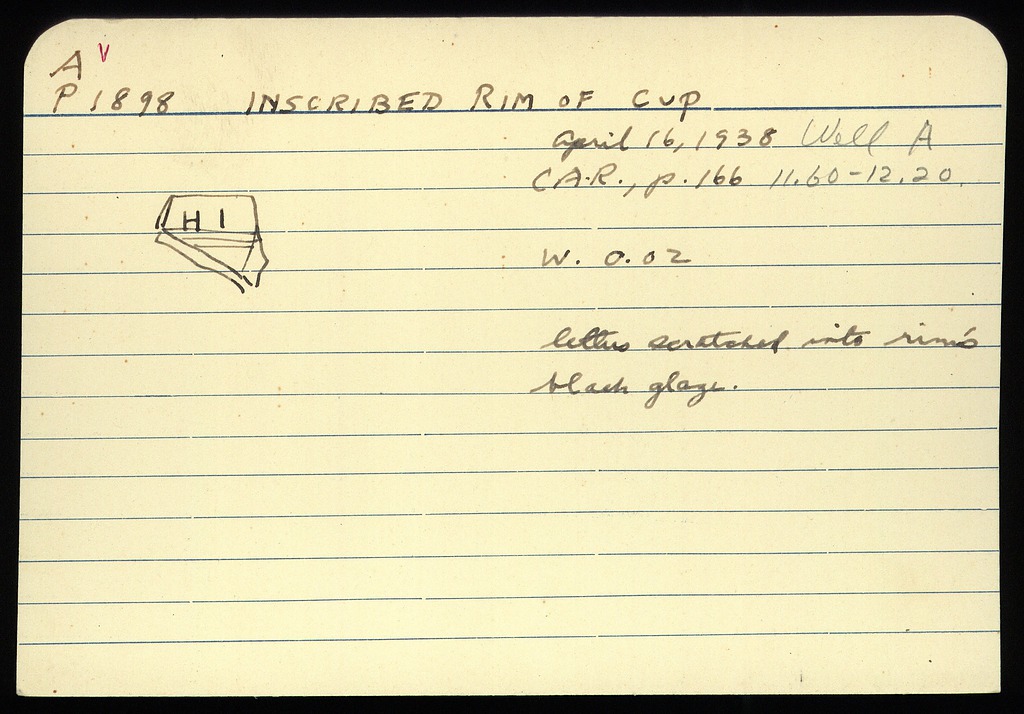 A V
P 1898 INSCRIBED RIM OF CUP
April 16, 1938 Well A
C.A.R., p. 166 11.60-12.20
H I
W. 0.02
letters scratched into rim's
black glaze.